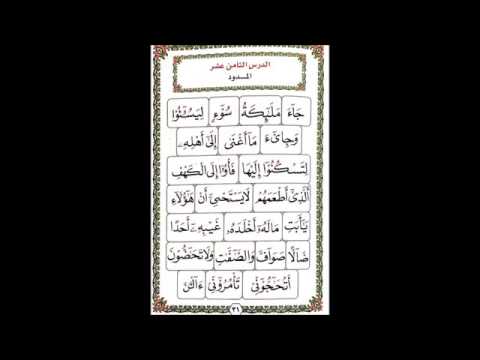 الدرس الثامن عشر
المدود
جَآءَ مَلَٰٓئِكَةُ سُوٓءٍ لِيَسُـۥٓـُٔوا۟
وَجِا۟ىٓءَ مَآ أَغْنَىٰ إِلَىٰٓ أَهْلِهِۦ
لِتَسْكُنُوٓا۟ إِلَيْهَا فَأْوُۥٓا۟ إِلَى الْكَهْفِ
الَّذِىٓ أَطْعَمَهُم لَا يَسْتَحْىِۦٓ أَنْ هَٰٓؤُلَآءِ
يَٰٓأَبَتِ مَالَهُۥٓ أَخْلَدَهُۥ غَيْبِهِۦٓ أَحَدًا
ضَآلًّا صَوَآفَّ وَالصَّٰٓفَّٰتِ وَلَا تَحَٰٓضُّونَ
أَتُحَٰٓجُّوٓنِّى تَأْمُرُوٓنِّىٓ ءَآلْـَٰٔنَ
٣١